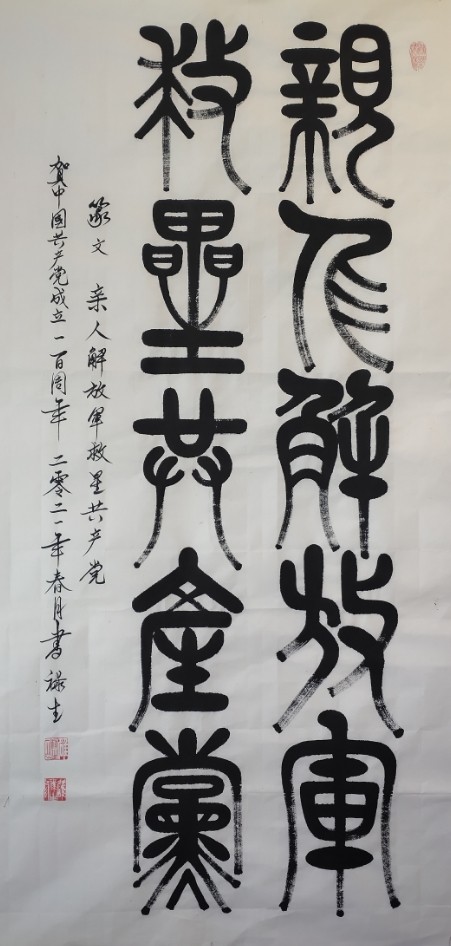 親人解放軍
救星共產黨
篆文 亲人解放军救星共产党
贺中国共产党成立一百周年 二零二一年春月書 禄生